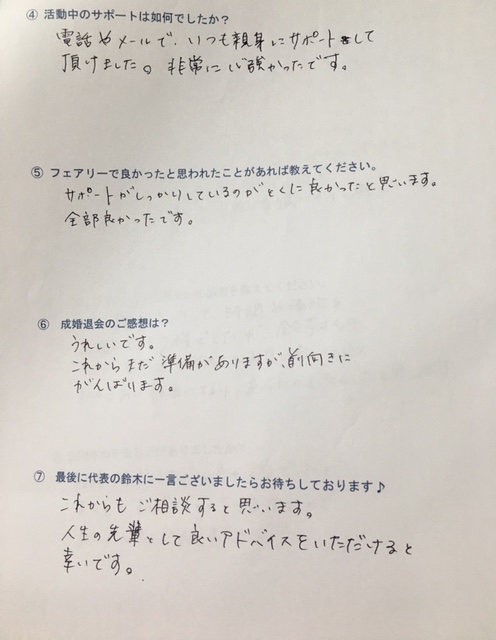 ④ 活動中のサポートは如何でしたか？
電話やメールで、いつも親身にサポートして
頂けました。非常に心強かったです。
⑤ フェアリーで良かったと思われたことがあれば教えてください。
サポートがしっかりしているのがとくに良かったと思います。
全部良かったです。
⑥ 成婚退会のご感想は？
うれしいです。
これからまだ準備がありますが、前向きに
がんばります。
⑦ 最後に代表の鈴木に一言ございましたらお待ちしております♪
これからもご相談すると思います。
人生の先輩として良いアドバイスをいただけると
幸いです。